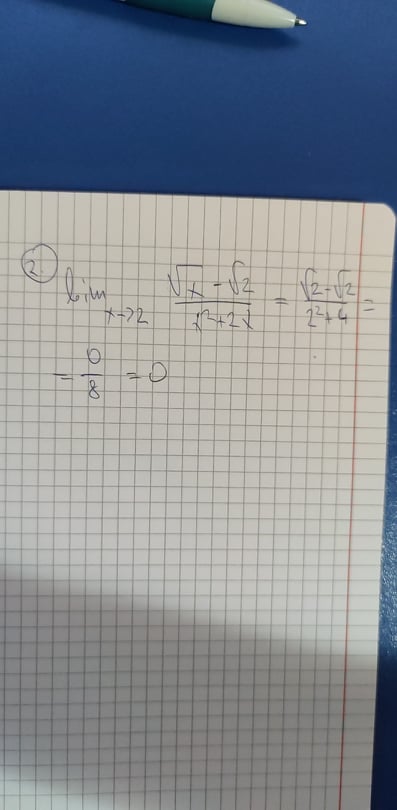 2. lim x→2 √x - √2 / x²+2x = √2-√2 / 2²+4 =
= 0/8 = 0